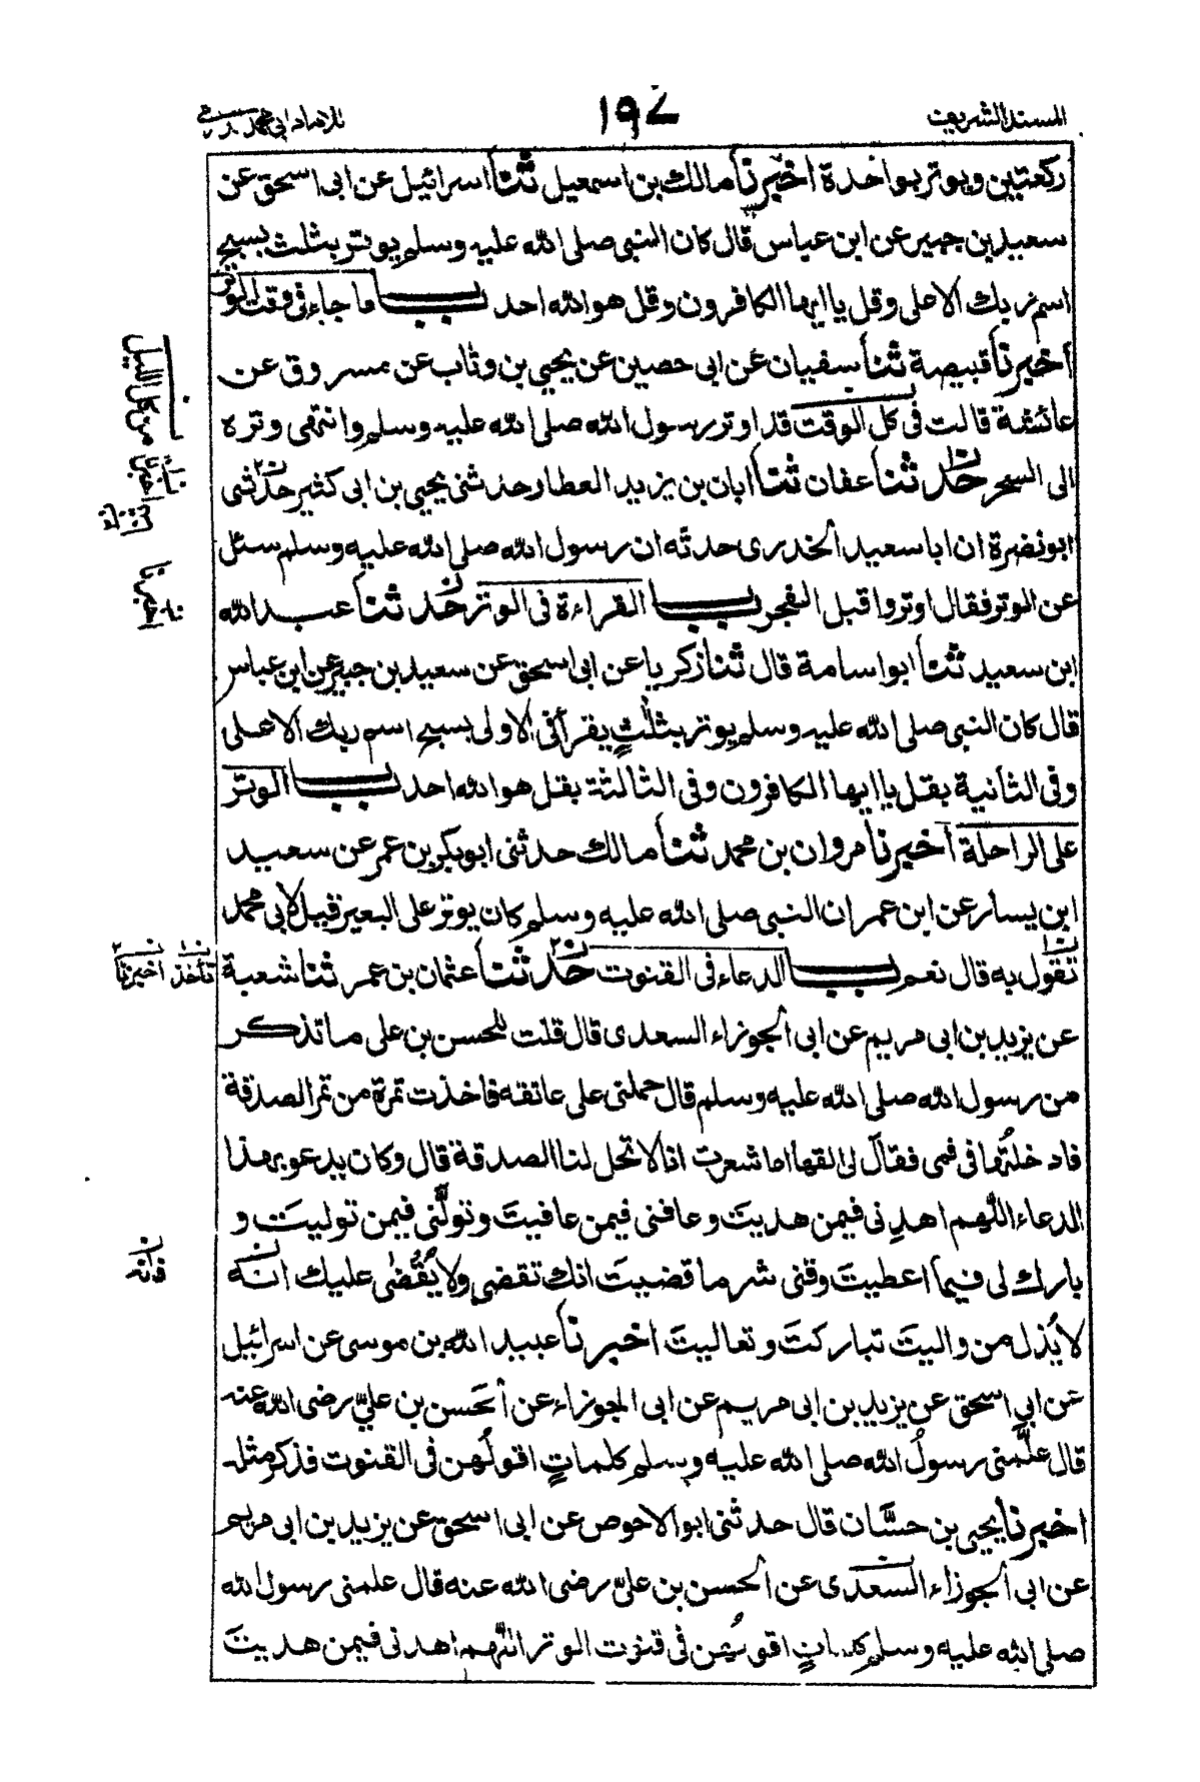 المسند الشريف
١٩٤
للامام ابى محمد
ركعتين ويوتر بواحدة اخبرنا مالك بن اسمعيل ثنا اسرائيل عن ابى اسحق عن
سعيد بن جبير عن ابن عباس قال كان النبى صلى الله عليه وسلم يوتر بثلث بسبح
اسم ربك الاعلى وقل يا ايها الكافرون وقل هو الله احد باب ما جاء فى وقت الوتر
اخبرنا قبيصة ثنا سفيان عن ابى حصين عن يحيى بن وثاب عن مسروق عن
عائشة قالت فى كل الوقت قد اوتر رسول الله صلى الله عليه وسلم وانتهى وتره
الى السحر حدثنا عفان ثنا ابان بن يزيد العطار حدثنى يحيى بن ابى كثير حدثنى
ابو نضرة ان ابا سعيد الخدرى حدثه ان رسول الله صلى الله عليه وسلم سئل
عن الوتر فقال اوتروا قبل الفجر باب القراءة فى الوتر حدثنا عبد الله
ابن سعيد ثنا ابو اسامة قال ثنا زكريا عن ابى اسحق عن سعيد بن جبير عن ابن عباس
قال كان النبى صلى الله عليه وسلم يوتر بثلثٍ يقرأ فى الاولى بسبح اسم ربك الاعلى
وفى الثانية بقل يا ايها الكافرون وفى الثالثة بقل هو الله احد باب الوتر
على الراحلة اخبرنا مروان بن محمد ثنا مالك حدثنى ابو بكر بن عمر عن سعيد
ابن يسار عن ابن عمر ان النبى صلى الله عليه وسلم كان يوتر على البعير قيل لابى محمد
تقول به قال نعم باب الدعاء فى القنوت حدثنا عثمان بن عمر ثنا شعبة
عن يزيد بن ابى مريم عن ابى الجوزاء السعدى قال قلت للحسن بن على ما تذكر
من رسول الله صلى الله عليه وسلم قال حملنى على عاتقه فاخذت تمرة من تمر الصدقة
فادخلتُها فى فمى فقال لى القها اما شعرت انا لا تحل لنا الصدقة قال وكان يدعو بهذا
الدعاء اللّٰهم اهدِنى فيمن هديتَ وعافنى فيمن عافيتَ وتولَّنى فيمن توليتَ و
بارك لى فيما اعطيتَ وقنى شر ما قضيتَ انك تقضى ولا يُقْضٰى عليك انه
لا يَذل من واليتَ تباركتَ وتعاليتَ اخبرنا عبيد الله بن موسى عن اسرائيل
عن ابى اسحق عن يزيد بن ابى مريم عن ابى الجوزاء عن الحَسن بن عليّ رضى الله عنه
قال علَّمنى رسولُ الله صلى الله عليه وسلم كلماتٍ اقولُهن فى القنوت فذكر مثله
اخبرنا يحيى بن حسَّان قال حدثنى ابو الاحوص عن ابى اسحق عن يزيد بن ابى مريم
عن ابى الجوزاء السعدى عن الحسن بن علىّ رضى الله عنه قال علمنى رسول الله
صلى الله عليه وسلم كلماتٍ اقولُهن فى قنوت الوتر اللّٰهم اهدنى فيمن هديتَ
من كل الليل
اخبرنا
اخبرنا
تأخذ اخبرنا
فانه